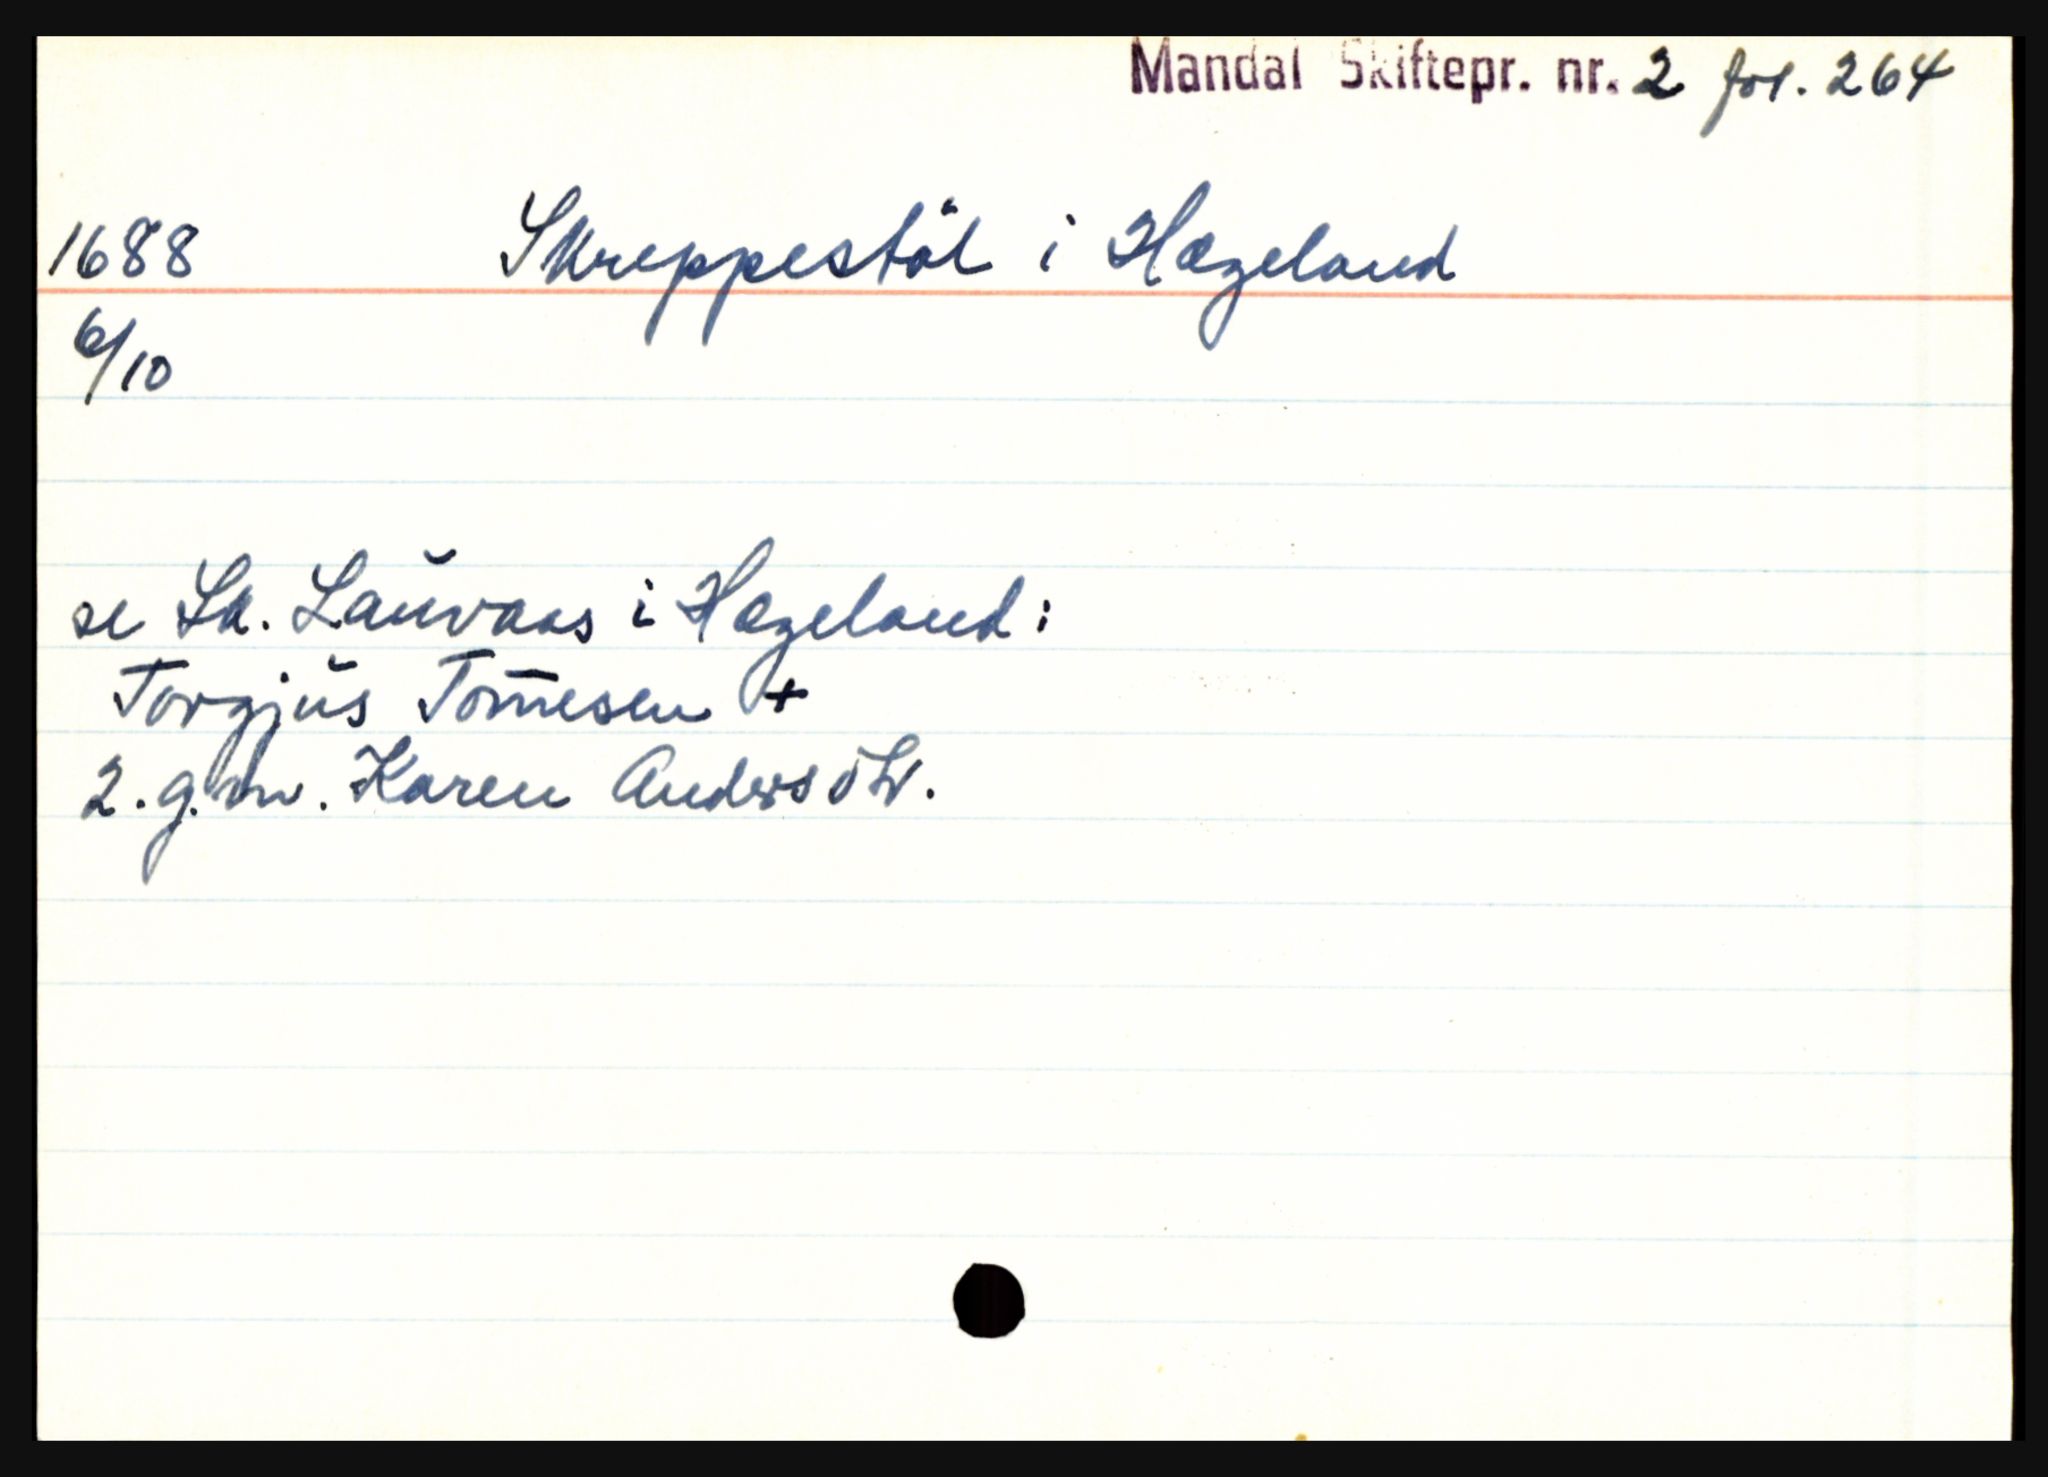 Mandal Skiftepr. nr. 2 fol. 264
1688 Skreppestöl i Hægeland
6/10
se Sk. Lauvaas i Hægeland:
Torgjus Tom̄esen +
2. g. m. Karen Anders dtr.